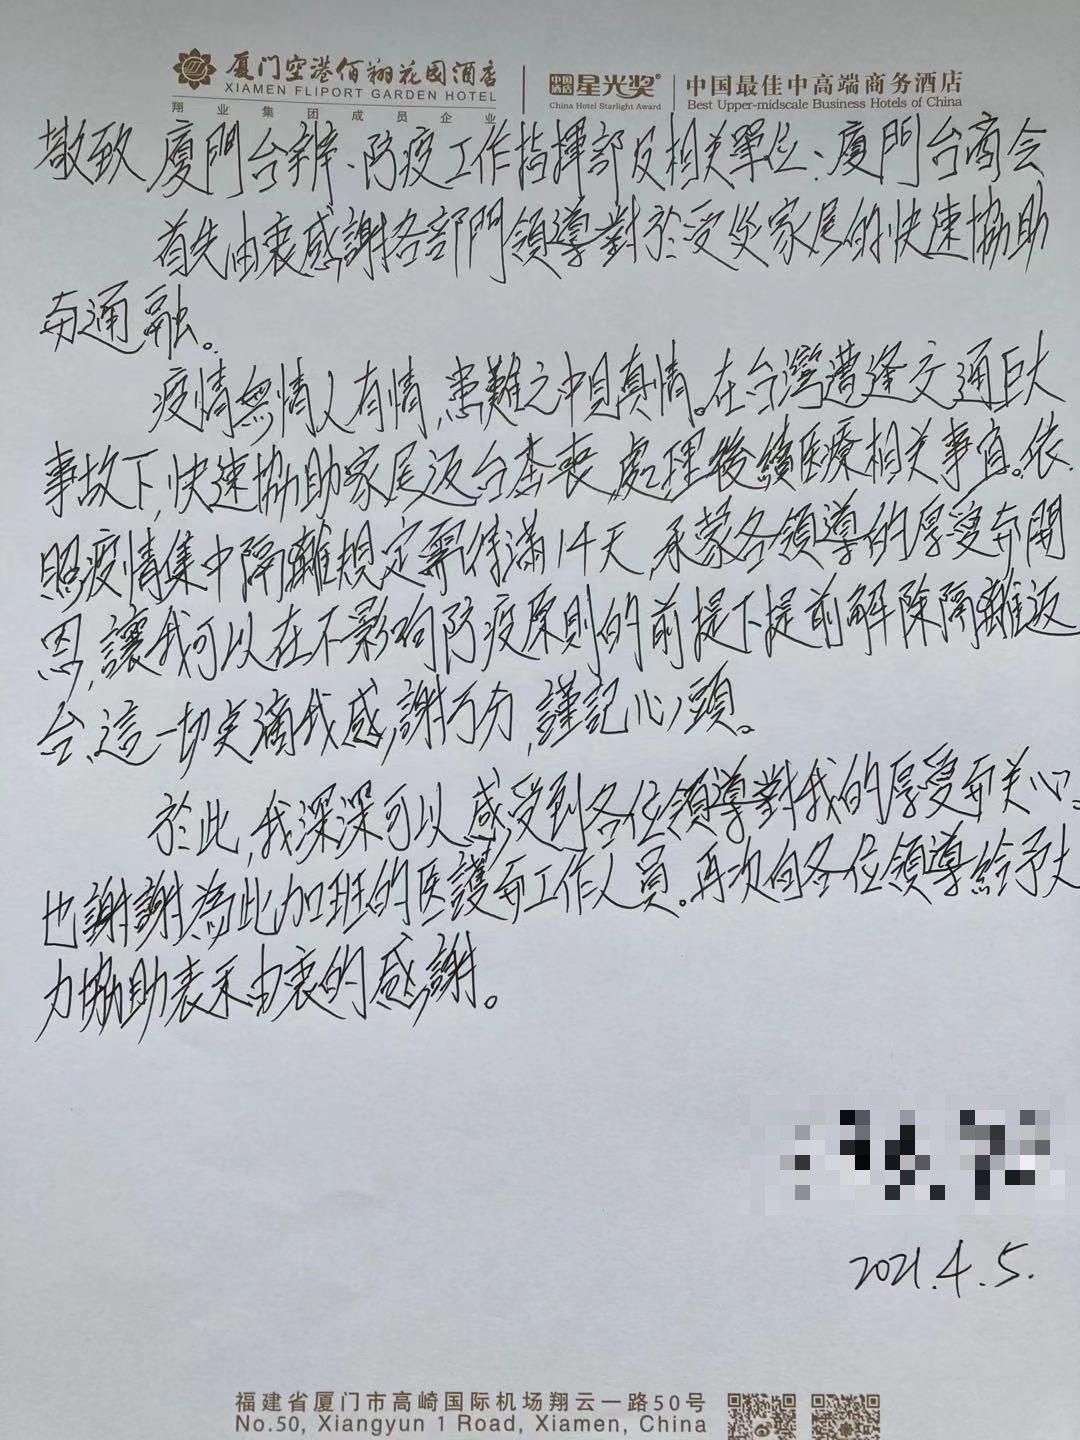 厦门空港佰翔花园酒店
XIAMEN FLIPORT GARDEN HOTEL
翔业集团成员企业
中国酒店 星光奖®
China Hotel Starlight Award
中国最佳中高端商务酒店
Best Upper-midscale Business Hotels of China
敬致廈門台辦、防疫工作指揮部及相关單位、廈門台商会
首先由衷感謝各部門領導對於受災家属的快速協助
与通融。
疫情無情人有情,患難之中見真情。在台灣遭逢交通巨大
事故下,快速協助家属返台奔喪,處理後續医療相关事宜。依
照疫情集中隔離規定需待滿14天,承蒙各領導的厚爱与開
恩,讓我可以在不影响防疫原則的前提下提前解除隔離返
台,這一切点滴我感謝万分,謹記心頭。
於此,我深深可以感受到各位領導對我的厚爱与关心。
也謝謝為此加班的医護与工作人員。再次向各位領導給予大
力協助表示由衷的感謝。
2021.4.5.
福建省厦门市高崎国际机场翔云一路50号
No.50, Xiangyun 1 Road, Xiamen, China